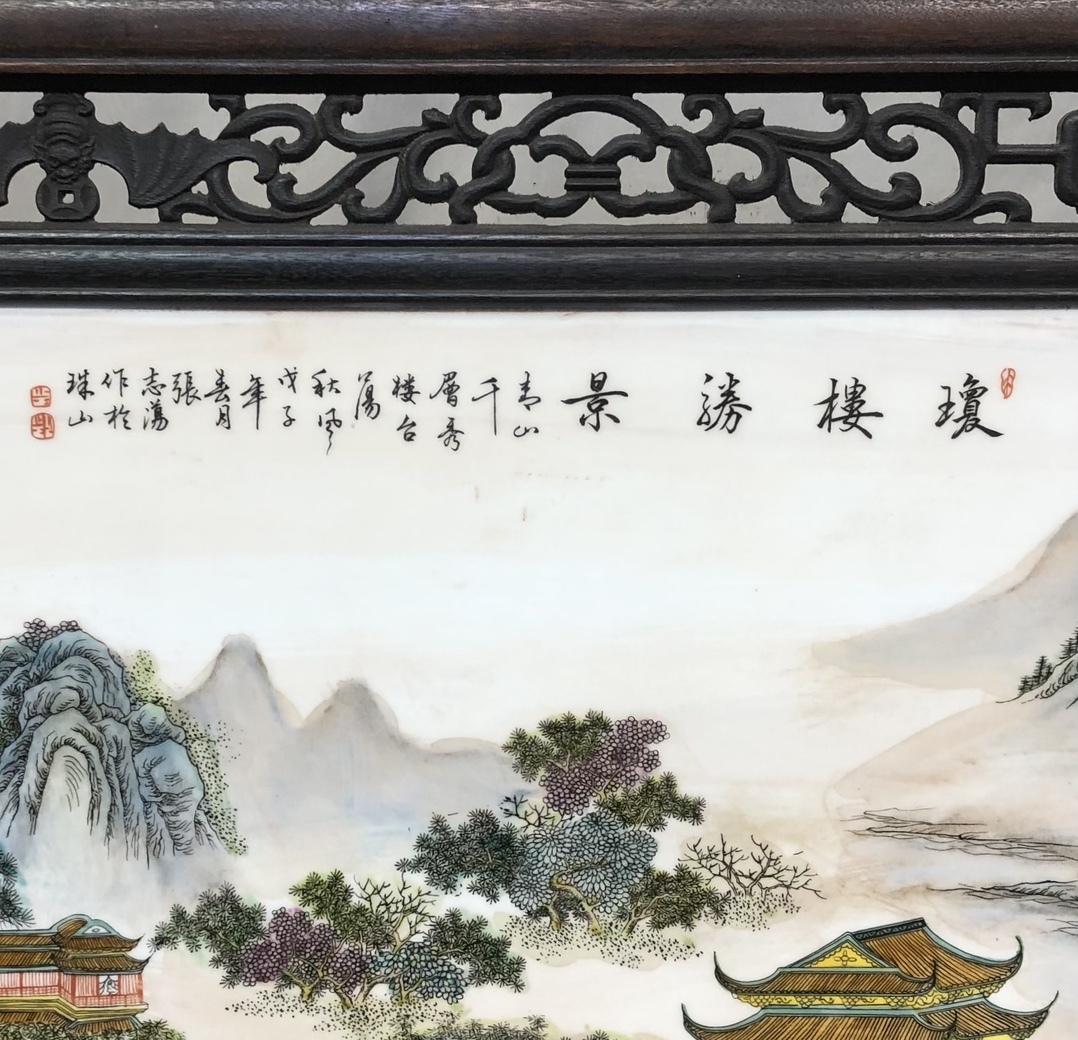 瓊樓勝景
青山千層秀
楼台蕩秋風
戊子年春月
張志蕩作於珠山